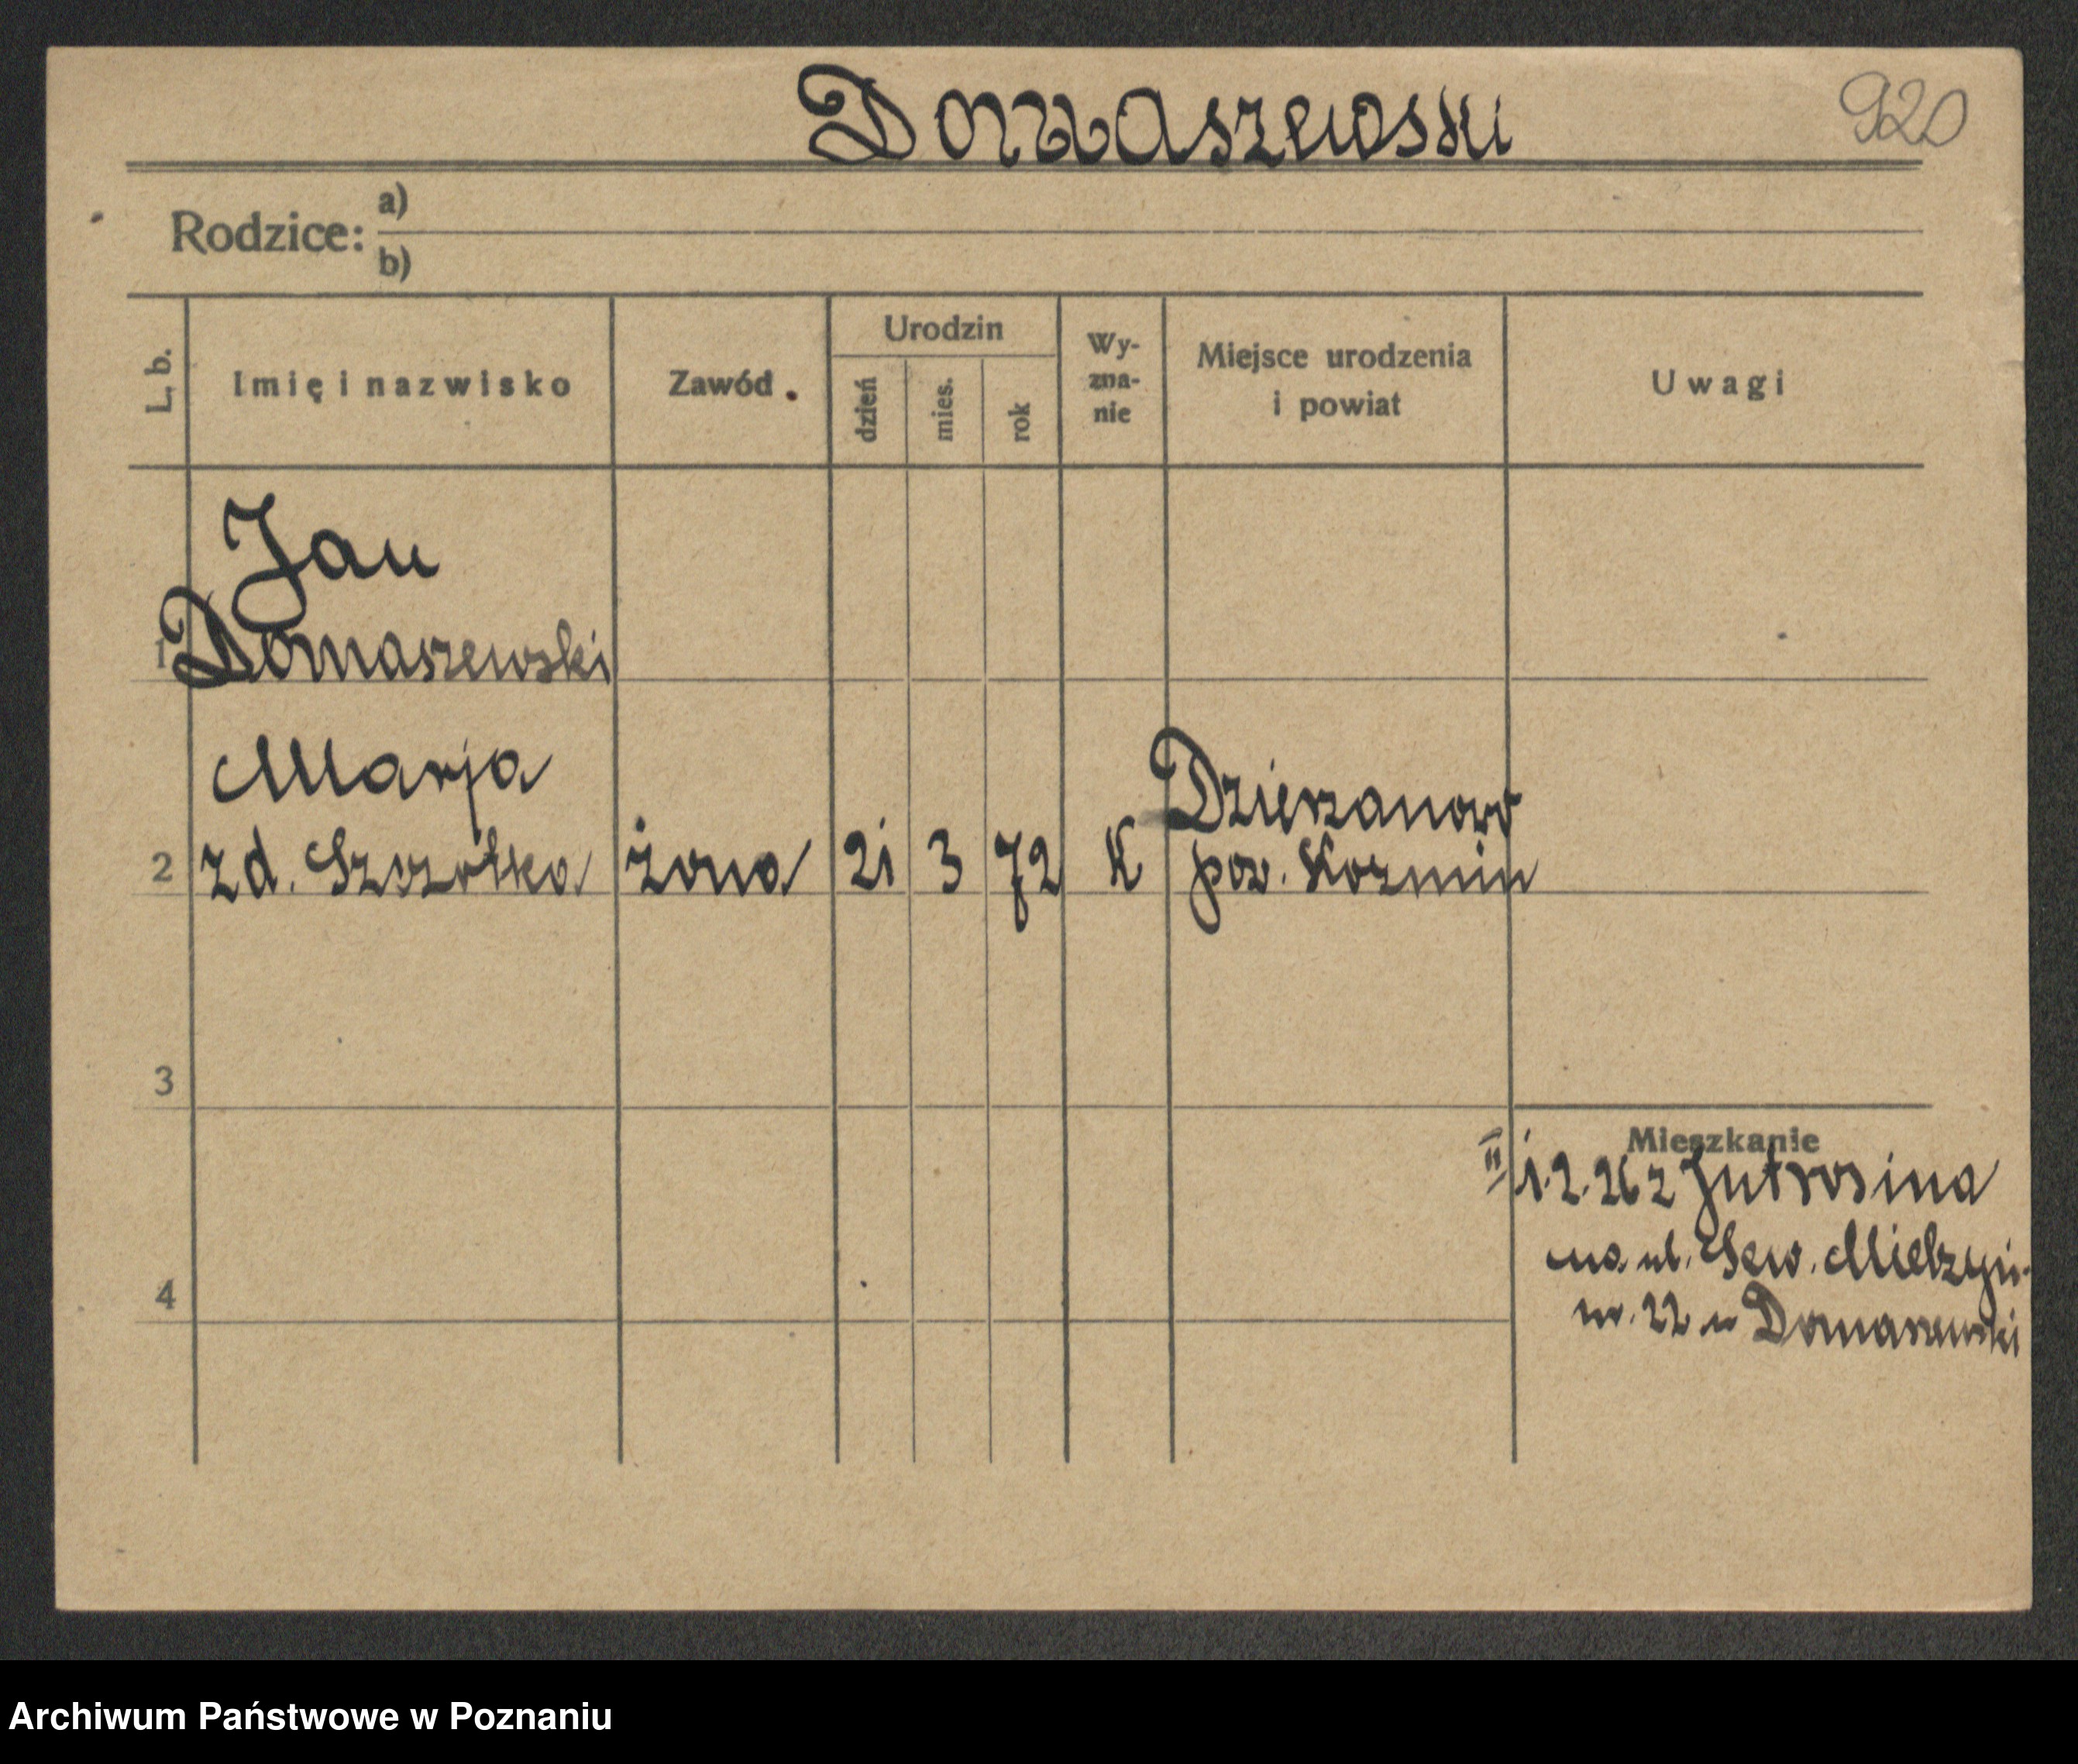 Domaszewski
920
Rodzice: a)
b)
L. b.
Imię i nazwisko
Zawód
Urodzin
dzień
mies.
rok
Wy-
zna-
nie
Miejsce urodzenia
i powiat
Uwagi
Jan
1 Domaszewski
Marja
2 z d. Szczotka żona 21 3 72 K Dzierzanowo
pow. Kozmin
3
Mieszkanie
II 1.2.26 z Jutrosina
na ul. Sew. Mielżyń.
nr. 22 u Domaszewski
4
Archiwum Państwowe w Poznaniu